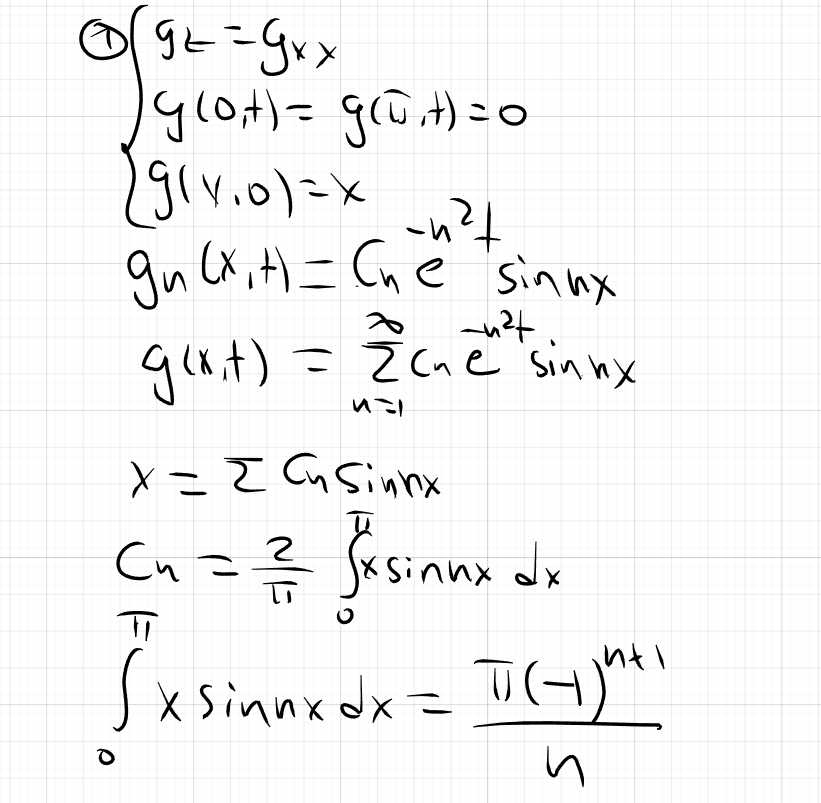 ① { g_t = g_xx
g(0,t) = g(π,t) = 0
g(x,0) = x
g_n(x,t) = C_n e^{-n²t} sin nx
g(x,t) = ∑_{n=1}^{∞} C_n e^{-n²t} sin nx
x = ∑ C_n sin nx
C_n = 2/π ∫_0^π x sin nx dx
∫_0^π x sin nx dx = π(-1)^{n+1}/n